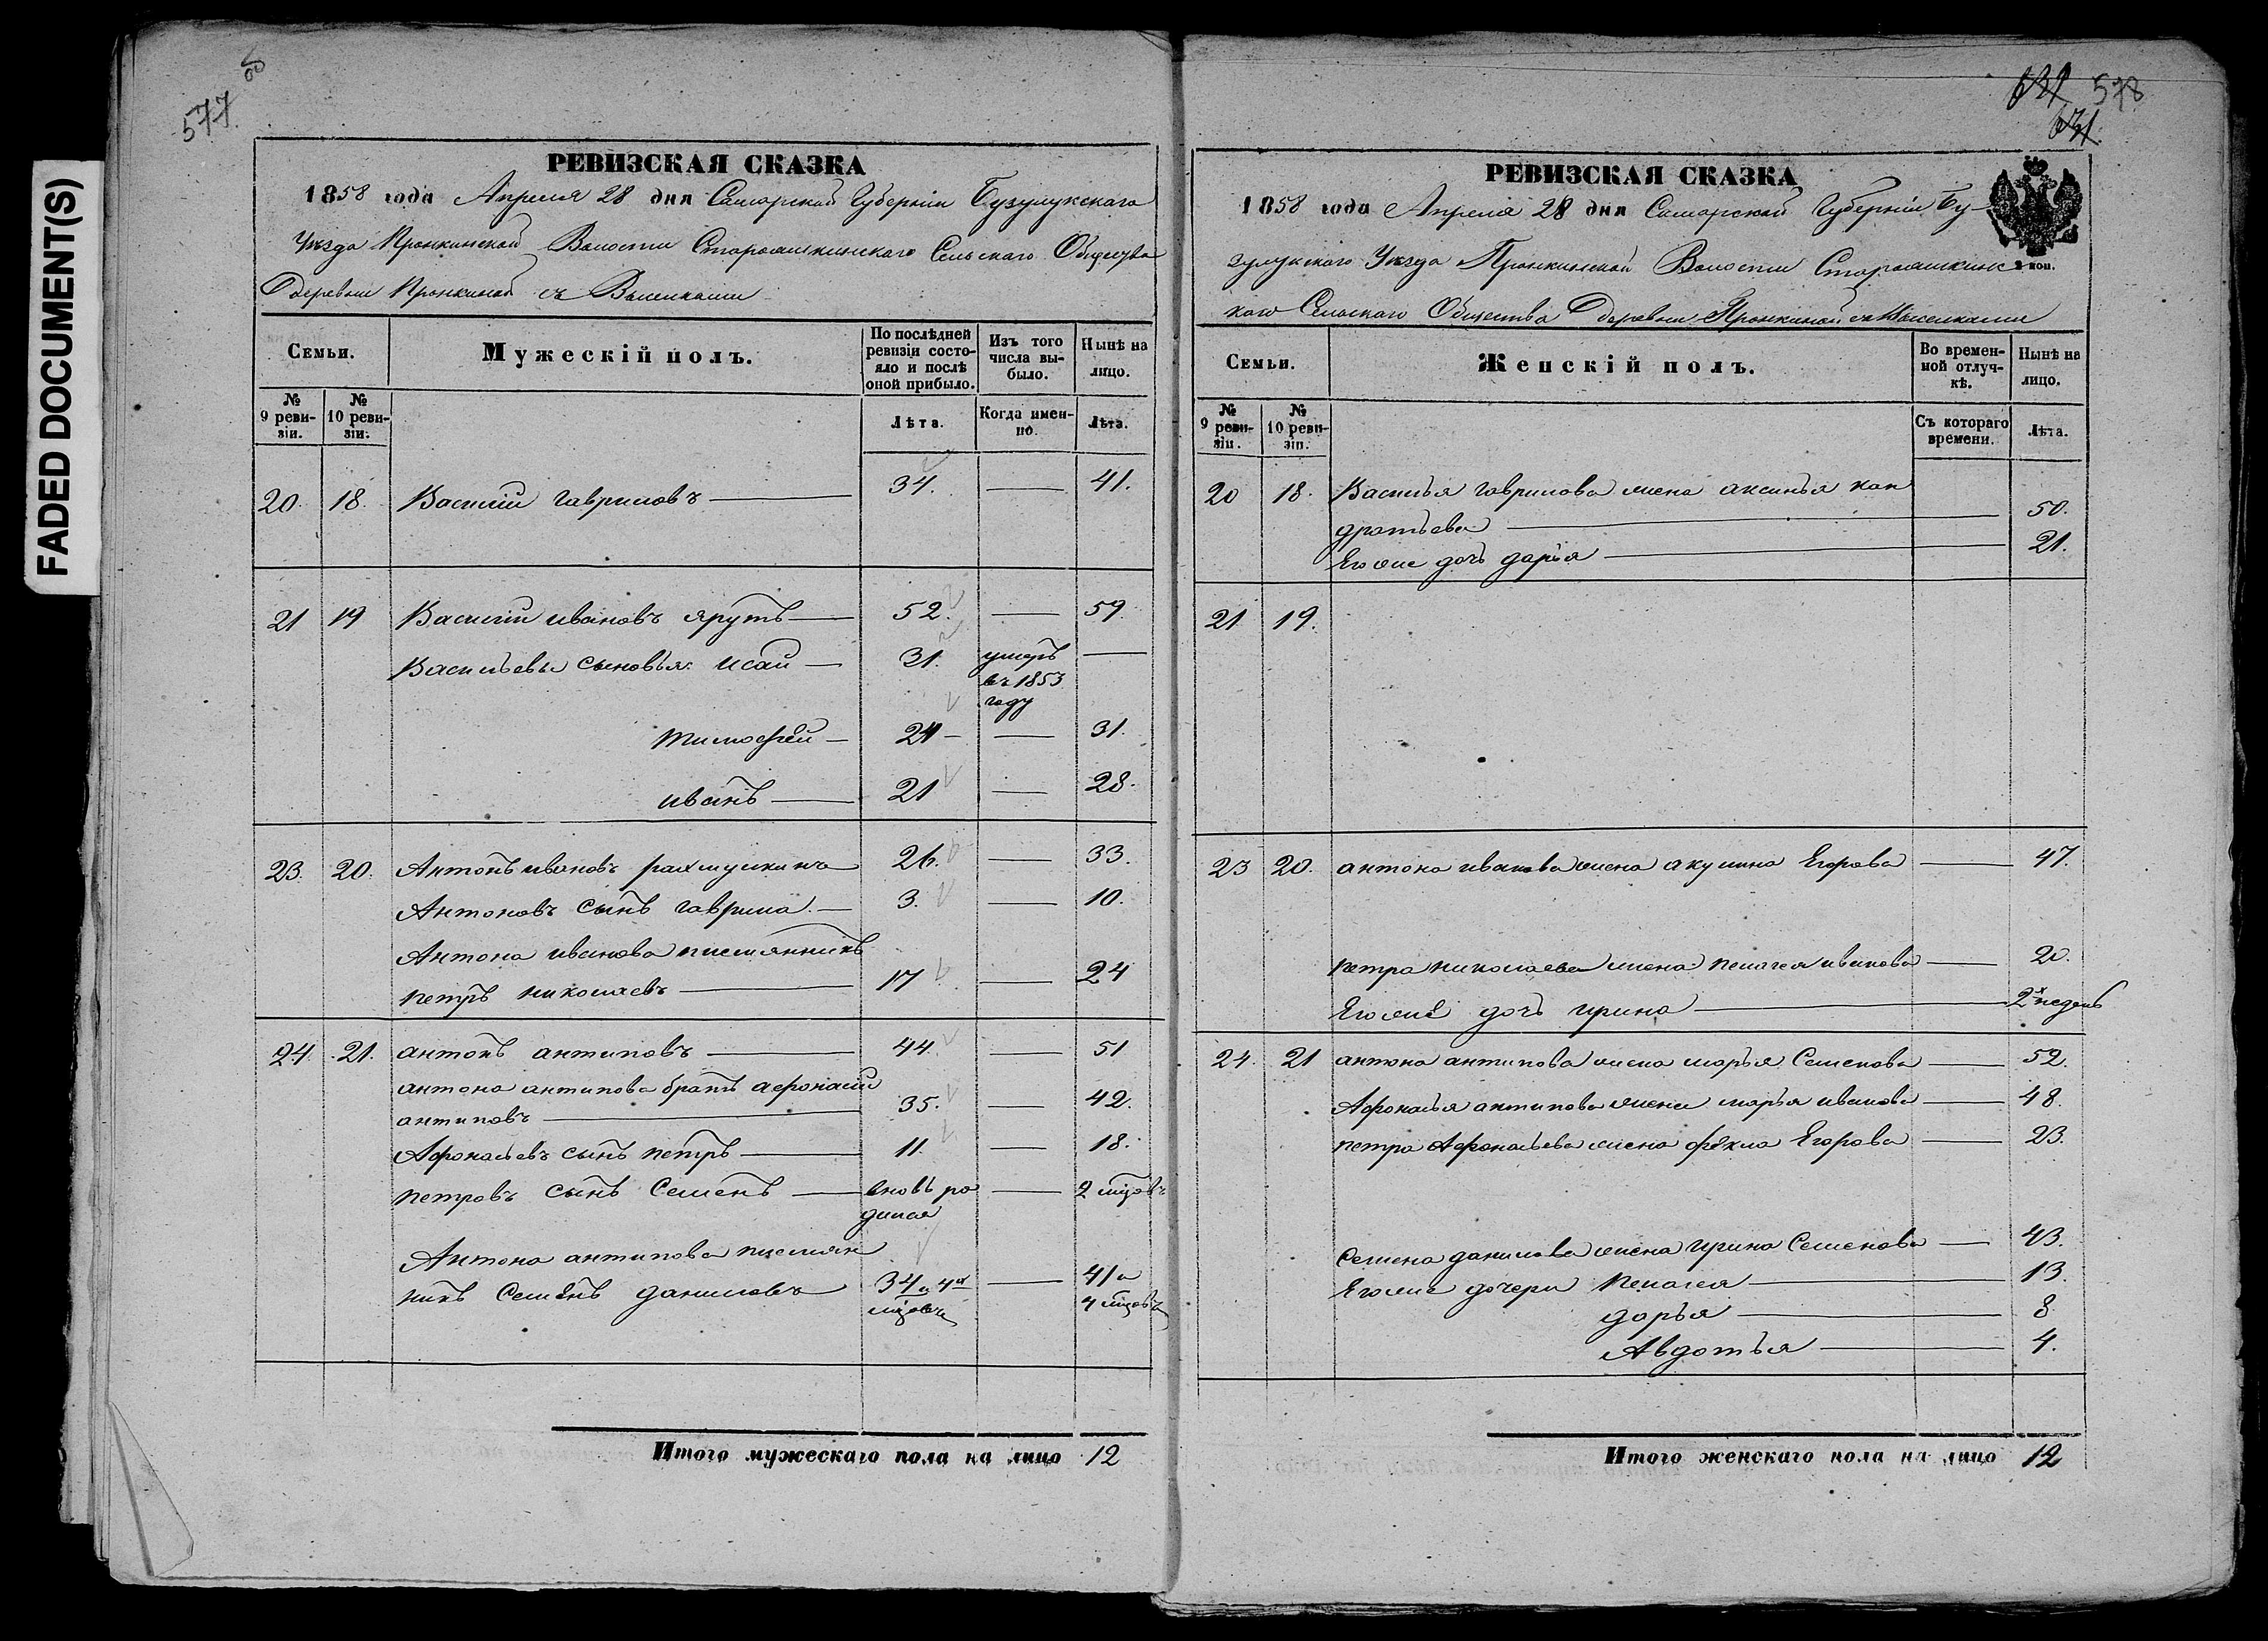 FADED DOCUMENT(S)
577
РЕВИЗСКАЯ СКАЗКА
1858 года Апреля 28 дня Самарской Губерніи Бузулукскаго
Уѣзда Пронкинской Волости Староашкинскаго Сельскаго Общества
Деревни Пронкиной съ Выселками
Семьи.
Мужескій полъ.
По послѣдней ревизіи состояло и послѣ оной прибыло.
Изъ того числа выбыло.
Нынѣ на лицо.
№ 9 ревизіи.
№ 10 ревизіи.
Лѣта.
Когда именно.
Лѣта.
20. 18. Василій гавриловъ 34. 41.
21 19 Василій ивановъ ярутъ 52. 59.
Васильевы сыновья: исай 31. умеръ
въ 1853
году
тимофей 24 31.
иванъ 21 28.
23. 20. Антонъ ивановъ рахмушкинъ 26. 33.
Антоновъ сынъ гаврила 3. 10.
Антона иванова племянникъ
петръ николаевъ 17 24
24. 21. антонъ антиповъ 44. 51
антона антипова братъ афонасій
антиповъ 35. 42.
Афонасьевъ сынъ петръ 11. 18.
петровъ сынъ Семенъ вновь ро 2 мцовъ
дился
Антона антипова племян
никъ Семенъ даниловъ 34 и 4х 41 и
мцовъ 4 мцовъ
Итого мужескаго пола на лицо 12
631 578
631
РЕВИЗСКАЯ СКАЗКА
1858 года Апреля 28 дня Самарской Губерніи Бу-
зулукского Уѣзда Пронкинской Волости Староашкинс
каго Сельскаго Общества Деревни Пронкиной съ Выселками
коп.
Семьи.
Женскій полъ.
Во временной отлучкѣ.
Нынѣ на лицо.
№ 9 ревизіи.
№ 10 ревизіи.
Съ котораго времени.
Лѣта.
20 18. Василья гаврилова жена аксинья кон
дратьева 50.
Его же дочь дарья 21.
21 19.
23 20. антона иванова жена акулина Егорова 47.
петра николаева жена пелагея иванова 20.
Его же дочь ирина 2х недель
24. 21 антона антипова жена марья Семенова 52.
Афонасья антипова жена марья иванова 48.
петра Афонасьева жена фекла Егорова 23.
Семена данилова жена ирина Семенова 43.
Его же дочери пелагея 13.
дарья 8
Авдотья 4.
Итого женскаго пола на лицо 12